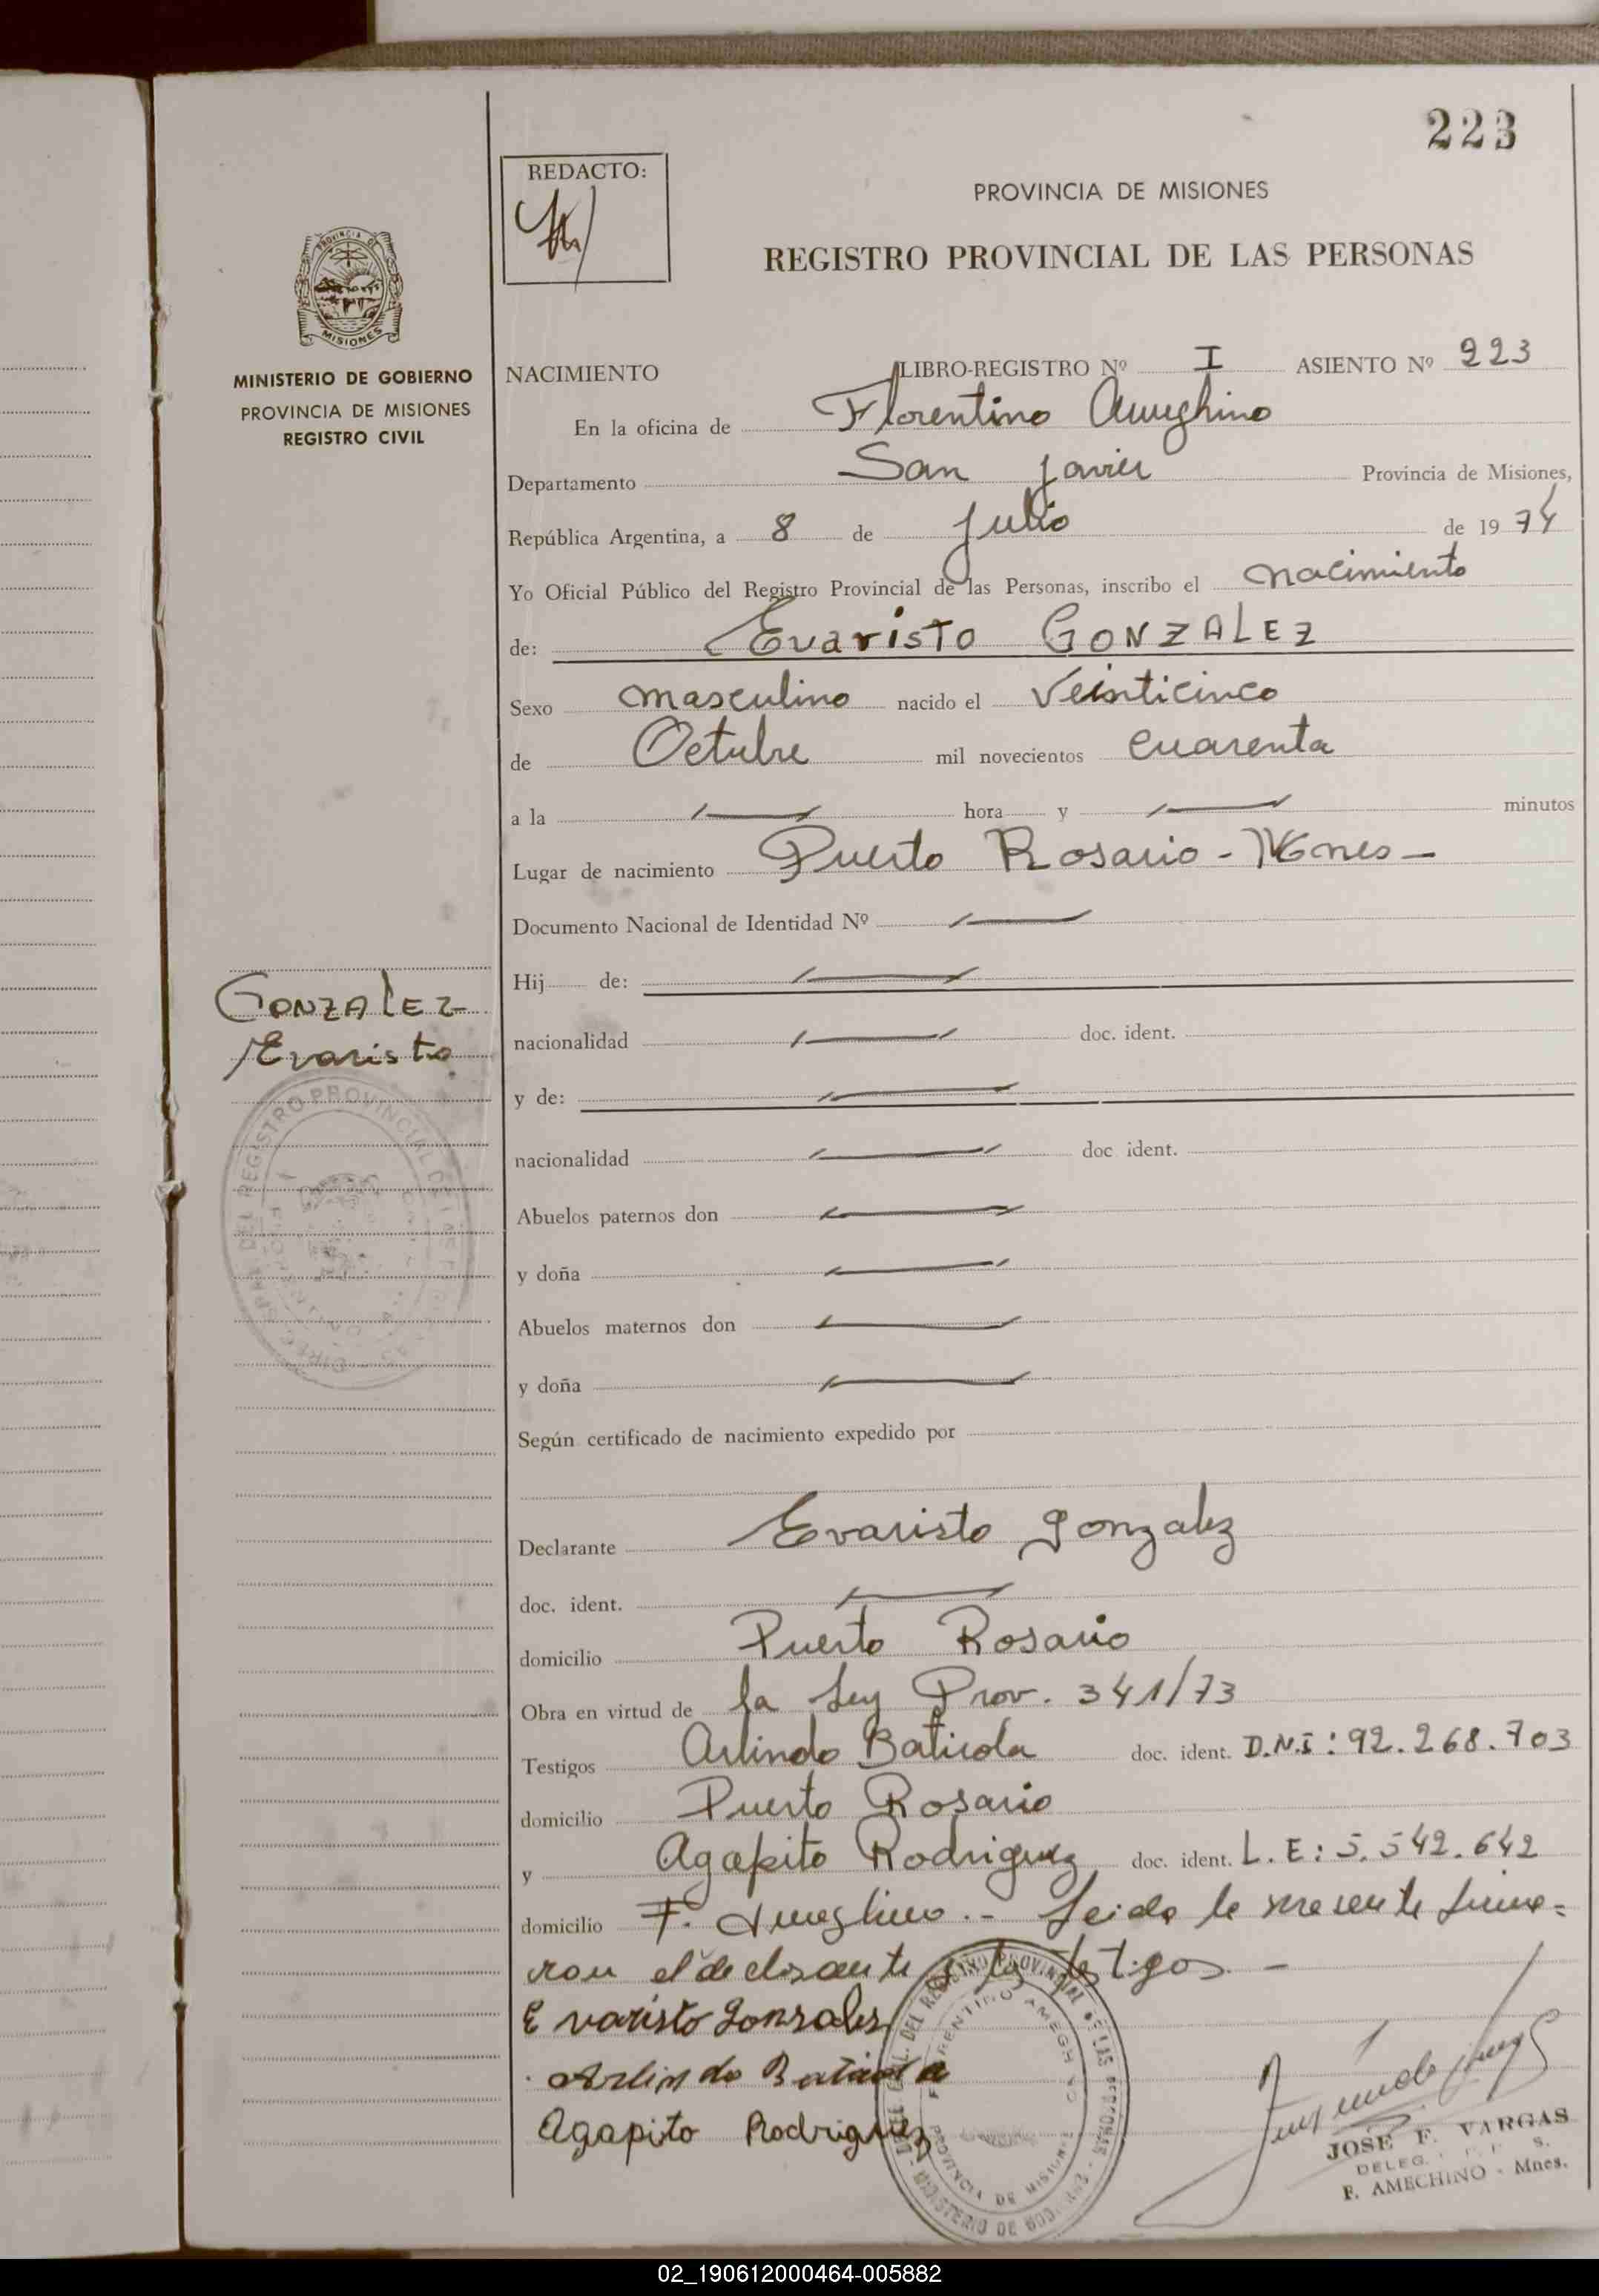 223
REDACTO:
PROVINCIA DE MISIONES
REGISTRO PROVINCIAL DE LAS PERSONAS
PROVINCIA DE
MISIONES
MINISTERIO DE GOBIERNO
PROVINCIA DE MISIONES
REGISTRO CIVIL
NACIMIENTO LIBRO-REGISTRO Nº I ASIENTO Nº 223
En la oficina de Florentino Ameghino
Departamento San Javier Provincia de Misiones,
República Argentina, a 8 de Julio de 1974
Yo Oficial Público del Registro Provincial de las Personas, inscribo el nacimiento
de: Evaristo GONZALEZ
Sexo masculino nacido el Veinticinco
de Octubre mil novecientos cuarenta
a la hora y minutos
Lugar de nacimiento Puerto Rosario - Mnes -
Documento Nacional de Identidad Nº
Hij de:
GONZALEZ
Evaristo
nacionalidad doc. ident.
y de:
nacionalidad doc ident.
Abuelos paternos don
y doña
Abuelos maternos don
y doña
Según certificado de nacimiento expedido por
Declarante Evaristo Gonzalez
doc. ident.
domicilio Puerto Rosario
Obra en virtud de la Ley Prov. 341/73
Testigos Arlindo Baticola doc. ident. D.N.I: 92.268.703
domicilio Puerto Rosario
y Agapito Rodriguez doc. ident. L.E: 5.542.642
domicilio F. Ameghino.- Leida la presente firma=
ron el declarante y los testigos. -
Evaristo Gonsales
Arlindo
Agapito Rodriguez
DEL REGISTRO PROVINCIAL DE LAS PERSONAS
FLORENTINO AMEGHINO
PROVINCIA DE MISIONES
MINISTERIO DE GOBIERNO
JOSE F. VARGAS
DELEG.
F. AMEGHINO - Mnes.
02_190612000464-005882